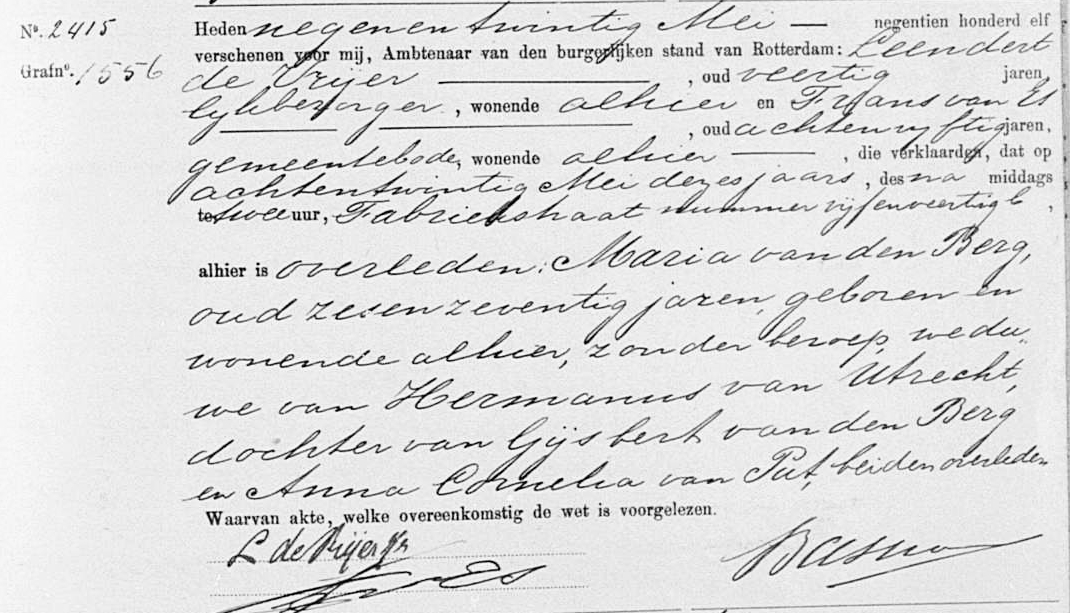 Nº. 2415
Grafnº. 1556
Heden negenentwintig Mei — negentien honderd elf
verschenen voor mij, Ambtenaar van den burgerlijken stand van Rotterdam: Leendert
de Vrijer ———, oud veertig jaren,
lijkbezorger, wonende alhier en Frans van Es
———, oud achtenvijftig jaren,
gemeentebode, wonende alhier ———, die verklaarden, dat op
achtentwintig Mei dezes jaars, des na middags
te twee uur, Fabriekstraat nummer vijfenveertig b,
alhier is overleden: Maria van den Berg,
oud zesenzeventig jaren, geboren en
wonende alhier, zonder beroep, wedu-
we van Hermanus van Utrecht,
dochter van Gijsbert van den Berg
en Anna Cornelia van Put, beiden overleden
Waarvan akte, welke overeenkomstig de wet is voorgelezen.
L de Vrijer Jr
Es